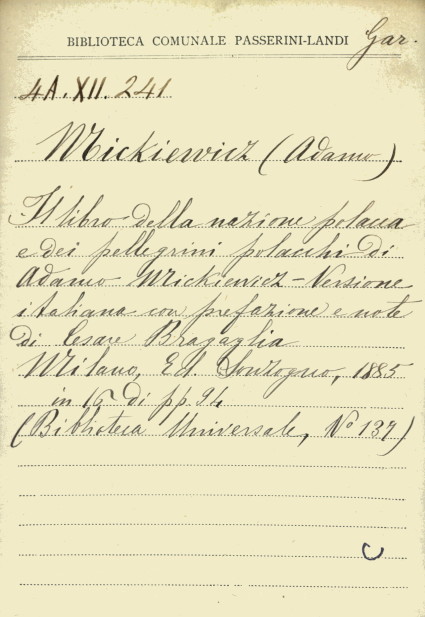 BIBLIOTECA COMUNALE PASSERINI-LANDI Gar.
4A.XII.241
Mickiewicz (Adamo)
Il libro della nazione polacca
e dei pellegrini polacchi di
Adamo Mickiewicz - Versione
italiana con prefazione e note
di Cesare Bragaglia
Milano, Ed. Sonzogno, 1885
in 16 di pp. 94
(Biblioteca Universale, Nº 137)